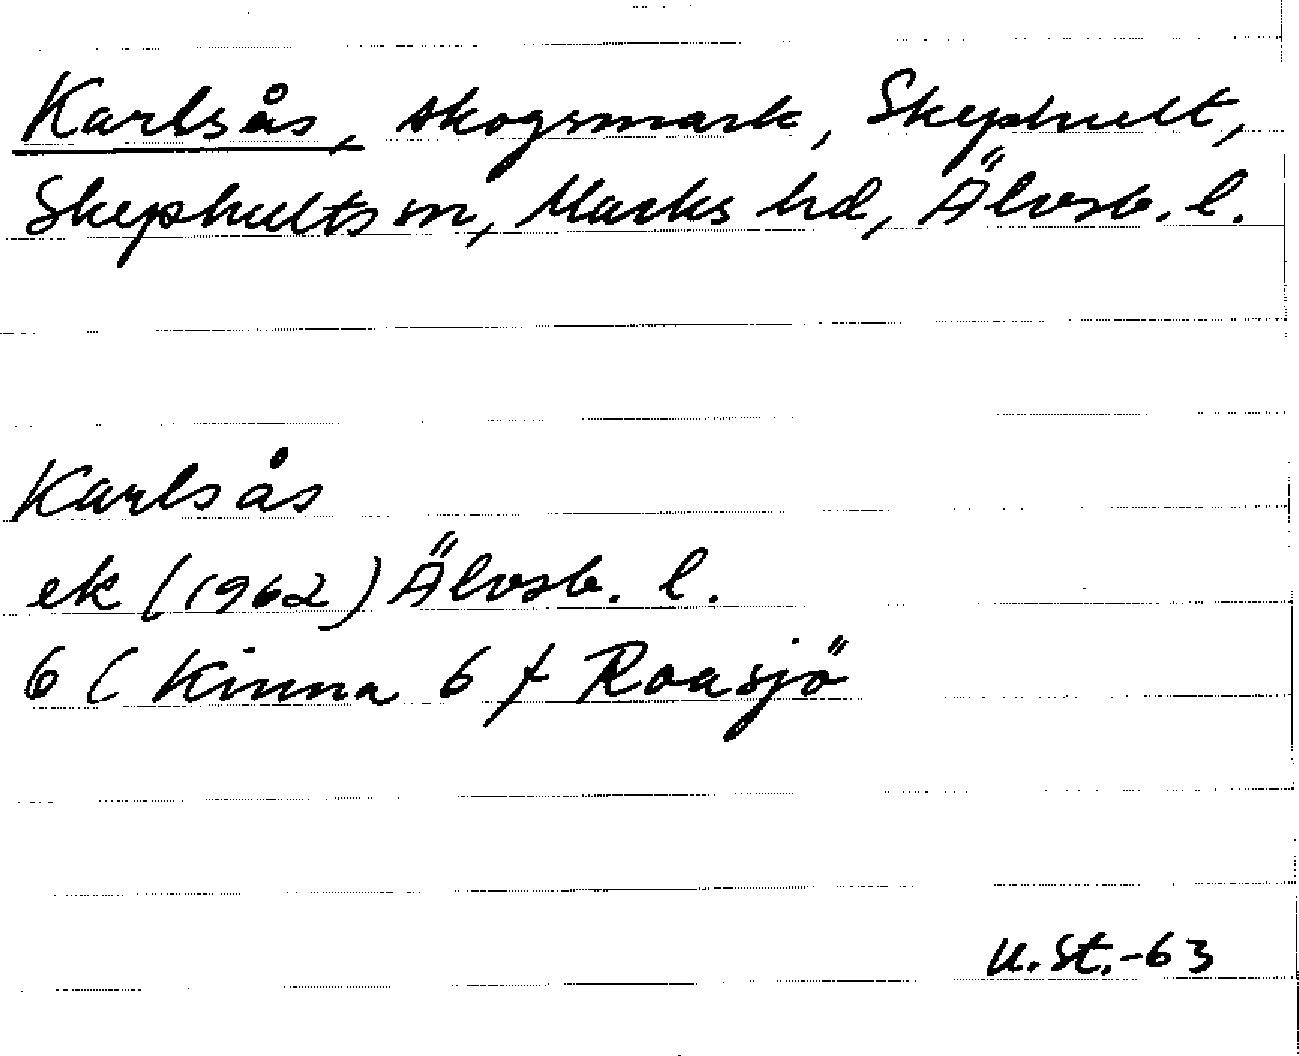 Karlsås, skogsmark, Skephult,
Skephults sn, Marks hd, Älvsb. l.
Karlsås
ek (1962) Älvsb. l.
6 (Kinna 6 f Roasjö
U.St.-63